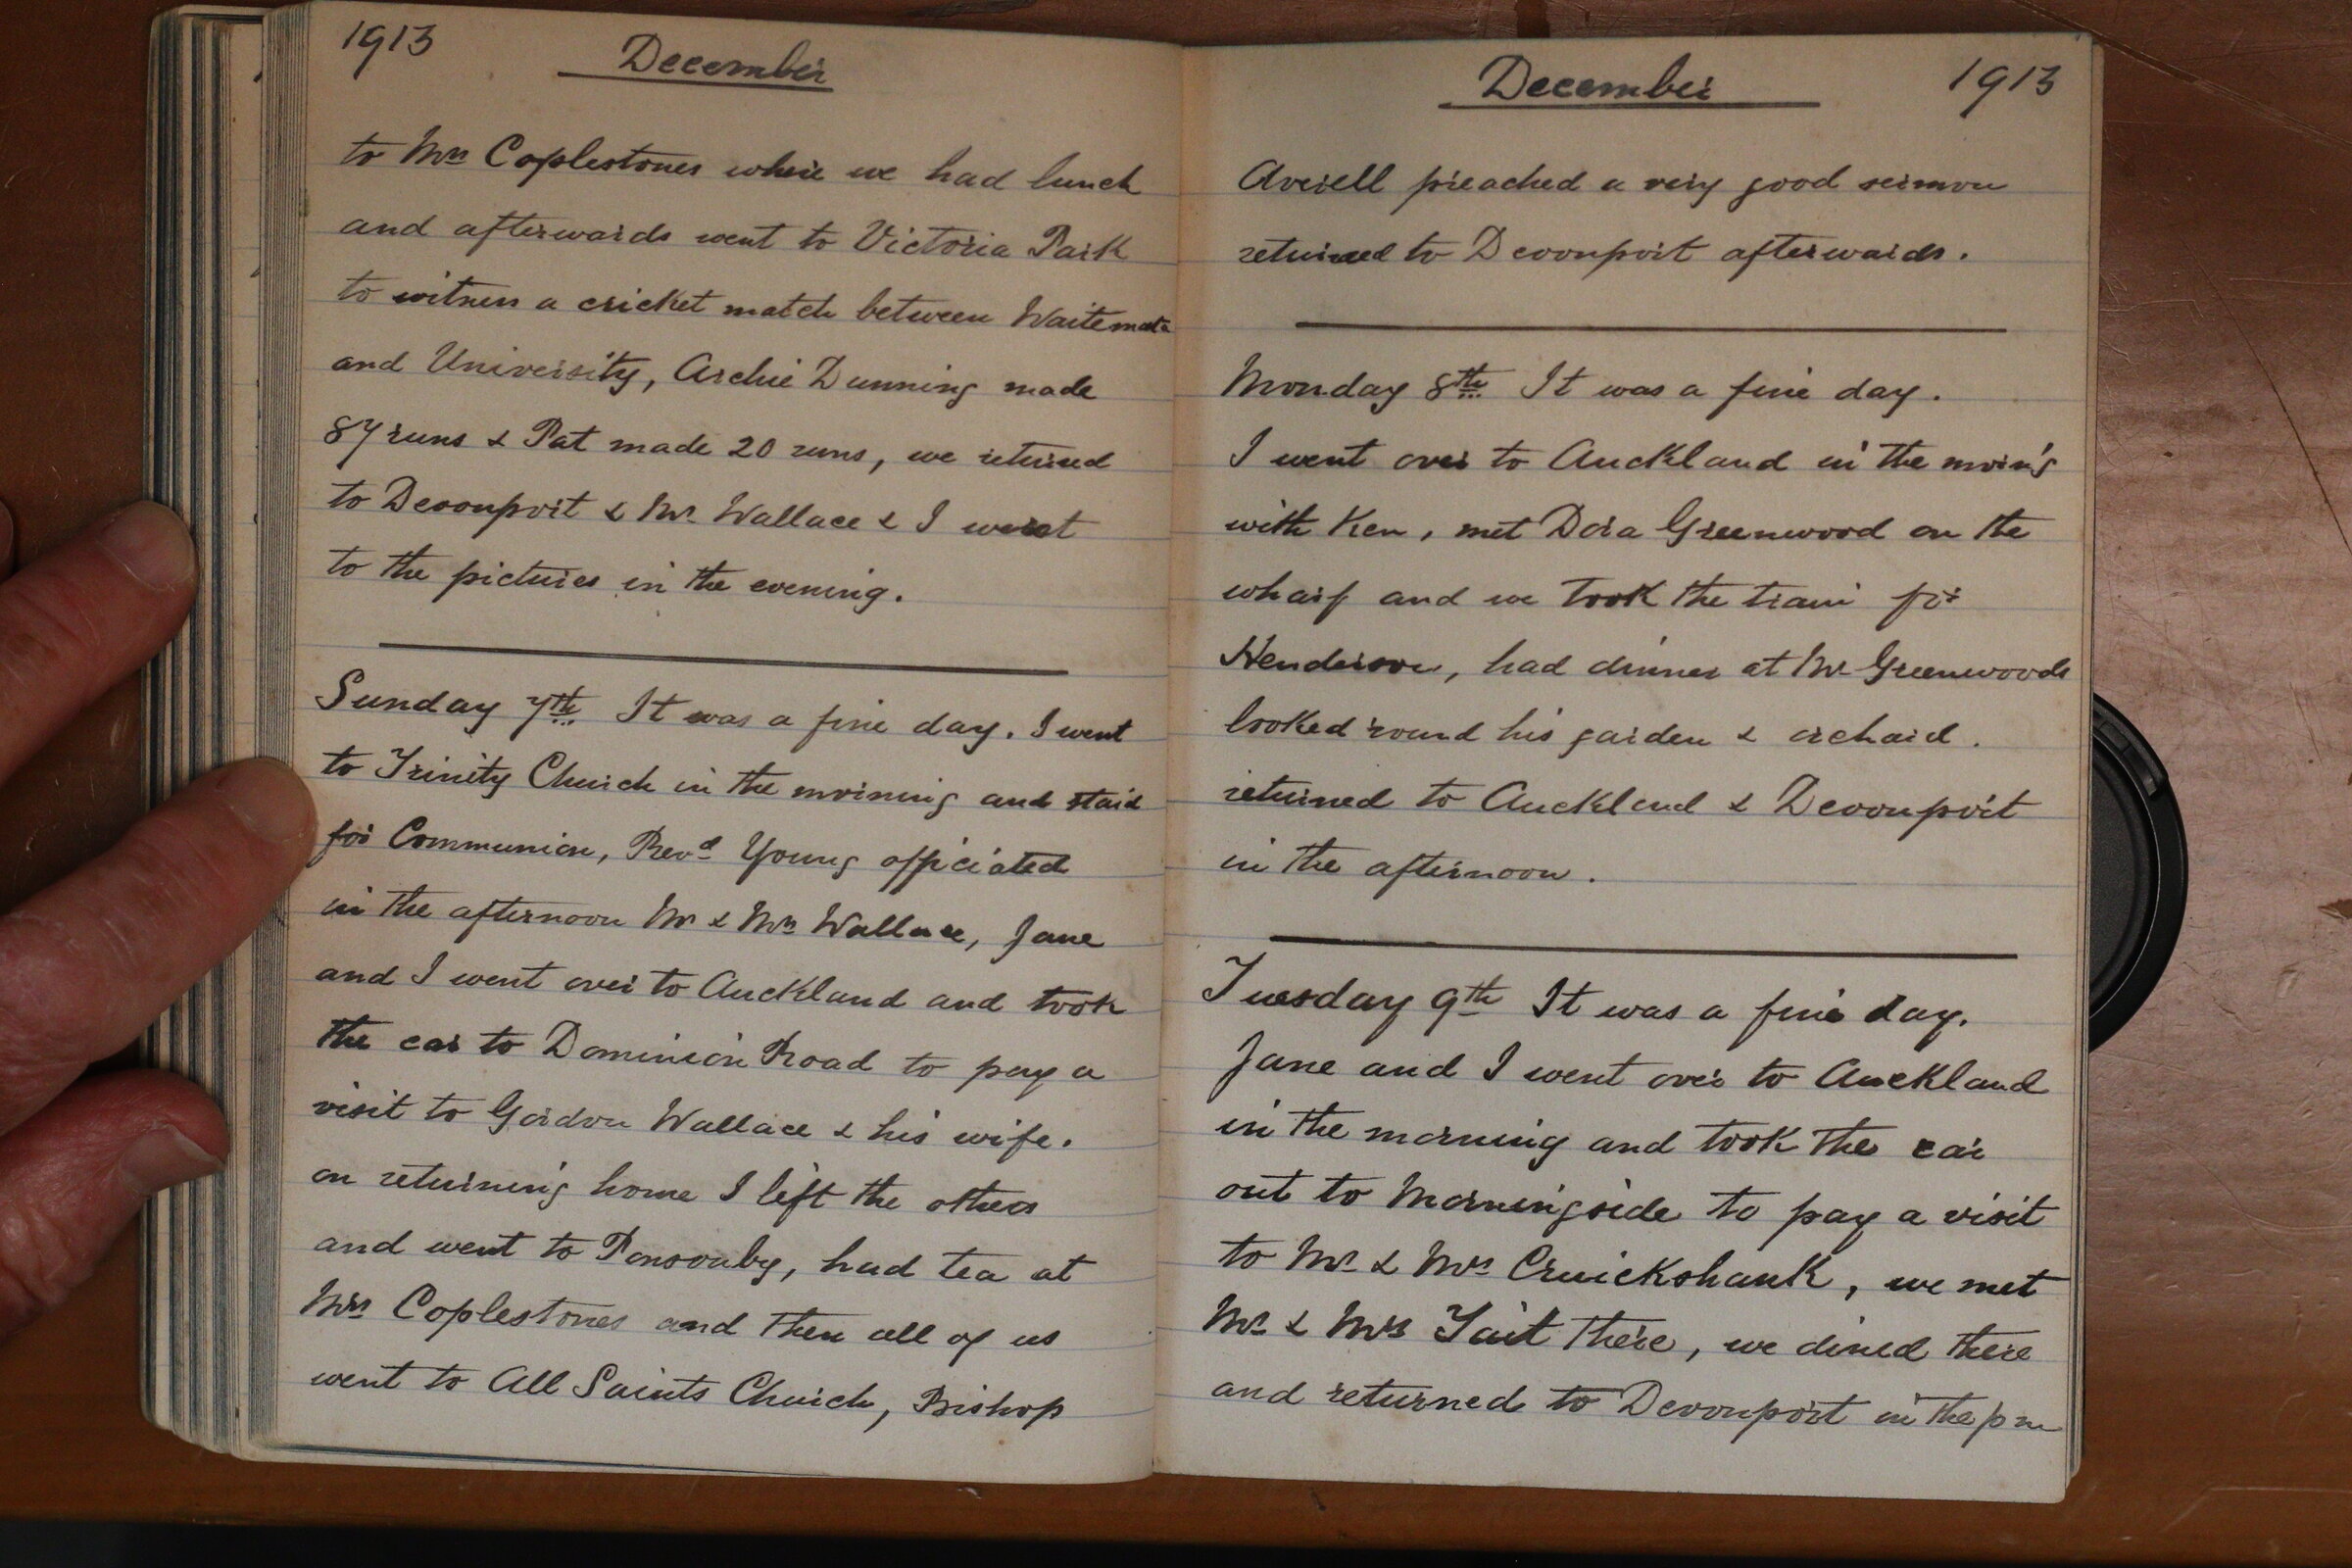 1913
December
to Mrs Coplestones where we had lunch
and afterwards went to Victoria Park
to witness a cricket match between Waitemata
and University, Archie Dunning made
87 runs & Pat made 20 runs, we returned
to Devonport & Mr Wallace & I went
to the pictures in the evening.
Sunday 7th It was a fine day. I went
to Trinity Church in the morning and staid
for Communion, Revd Young officiated
in the afternoon Mr & Mrs Wallace, Jane
and I went over to Auckland and took
the car to Dominion Road to pay a
visit to Gordon Wallace & his wife.
on returning home I left the others
and went to Ponsonby, had tea at
Mrs Coplestones and then all of us
went to All Saints Church, Bishop
December
1913
Averell preached a very good sermon
returned to Devonport afterwards.
Monday 8th It was a fine day.
I went over to Auckland in the morn'g
with Ken, met Dora Greenwood on the
wharf and we took the train for
Henderson, had dinner at Mr Greenwoods
looked round his garden & orchard.
returned to Auckland & Devonport
in the afternoon.
Tuesday 9th It was a fine day.
Jane and I went over to Auckland
in the morning and took the car
out to Morningside to pay a visit
to Mr & Mrs Cruickshank, we met
Mr & Mrs Tait there, we dined there
and returned to Devonport in the pm